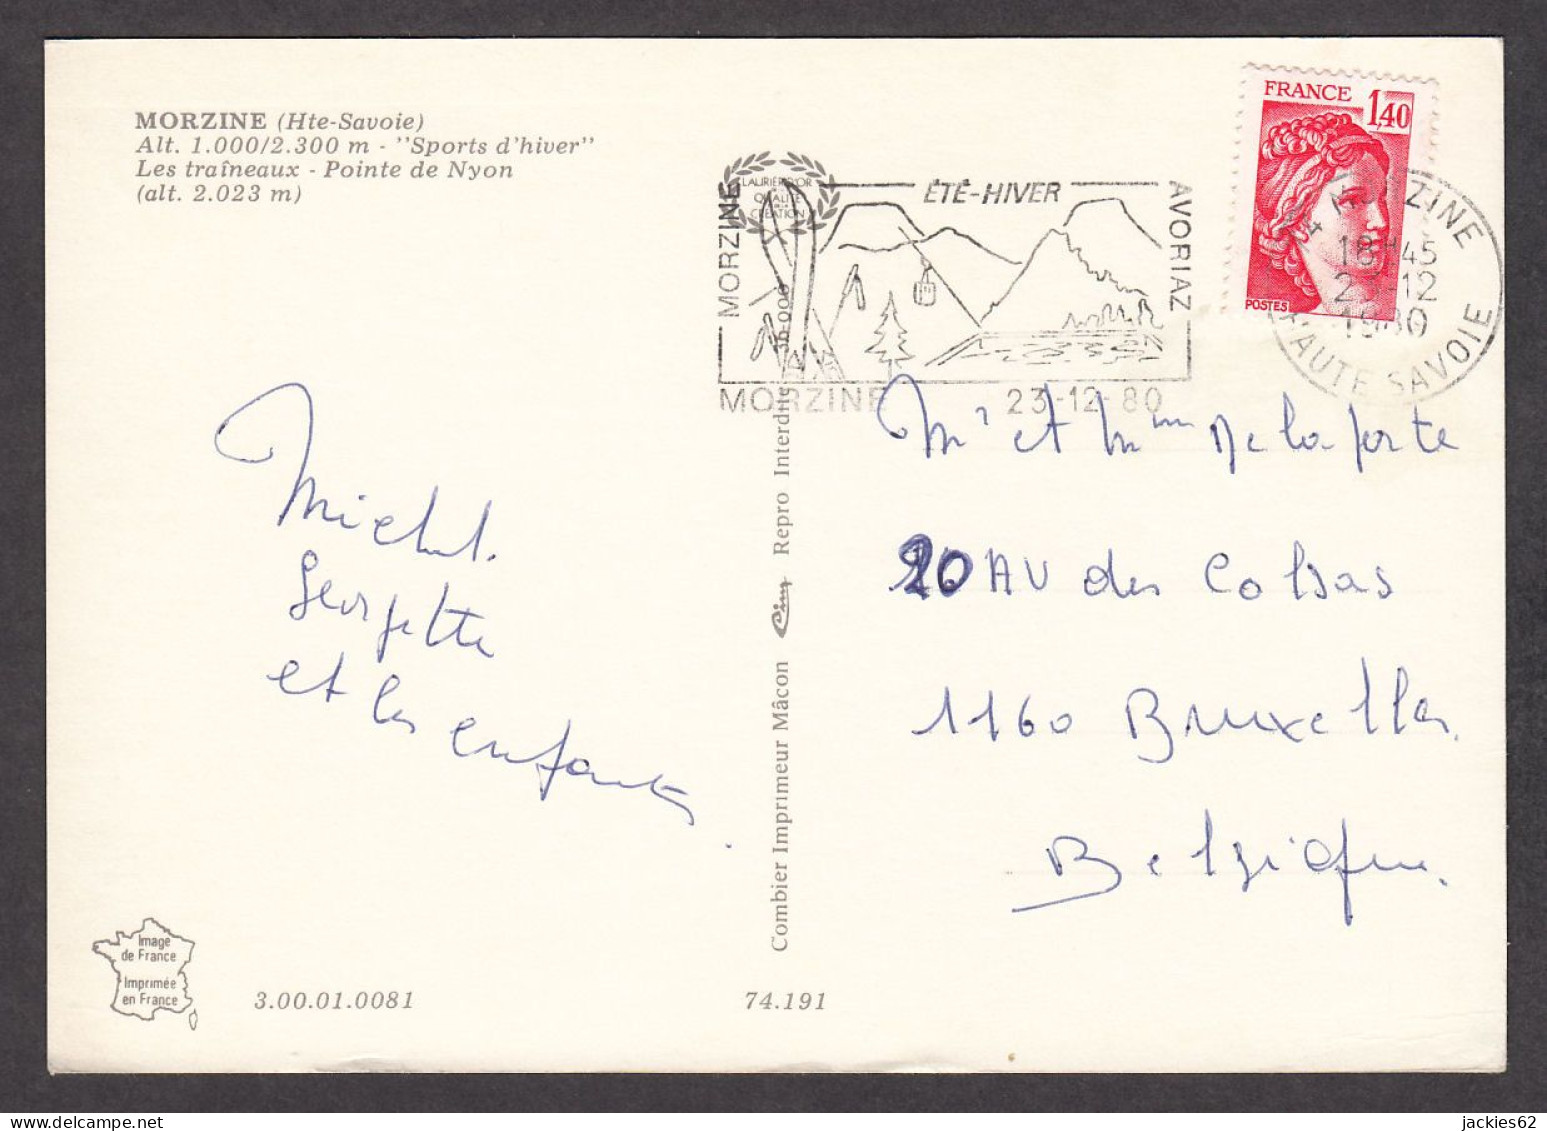 MORZINE (Hte-Savoie)
Alt. 1.000/2.300 m - "Sports d'hiver"
Les traîneaux - Pointe de Nyon
(alt. 2.023 m)
LAURIER D'OR
QUALITÉ
CRÉATION
MORZINE
ÉTÉ-HIVER
AVORIAZ
MORZINE 23-12-80
FRANCE
1,40
POSTES
74 MORZINE
18H45
23-12
1980
HAUTE SAVOIE
Michel.
Georgette
et les enfants.
Mr et Mme Delaporte
20 AV des
1160 Bruxelles.
Belgique.
Combier Imprimeur Mâcon Cim Repro Interdite 30 000
Image
de France
Imprimée
en France
3.00.01.0081
74.191
jackies62